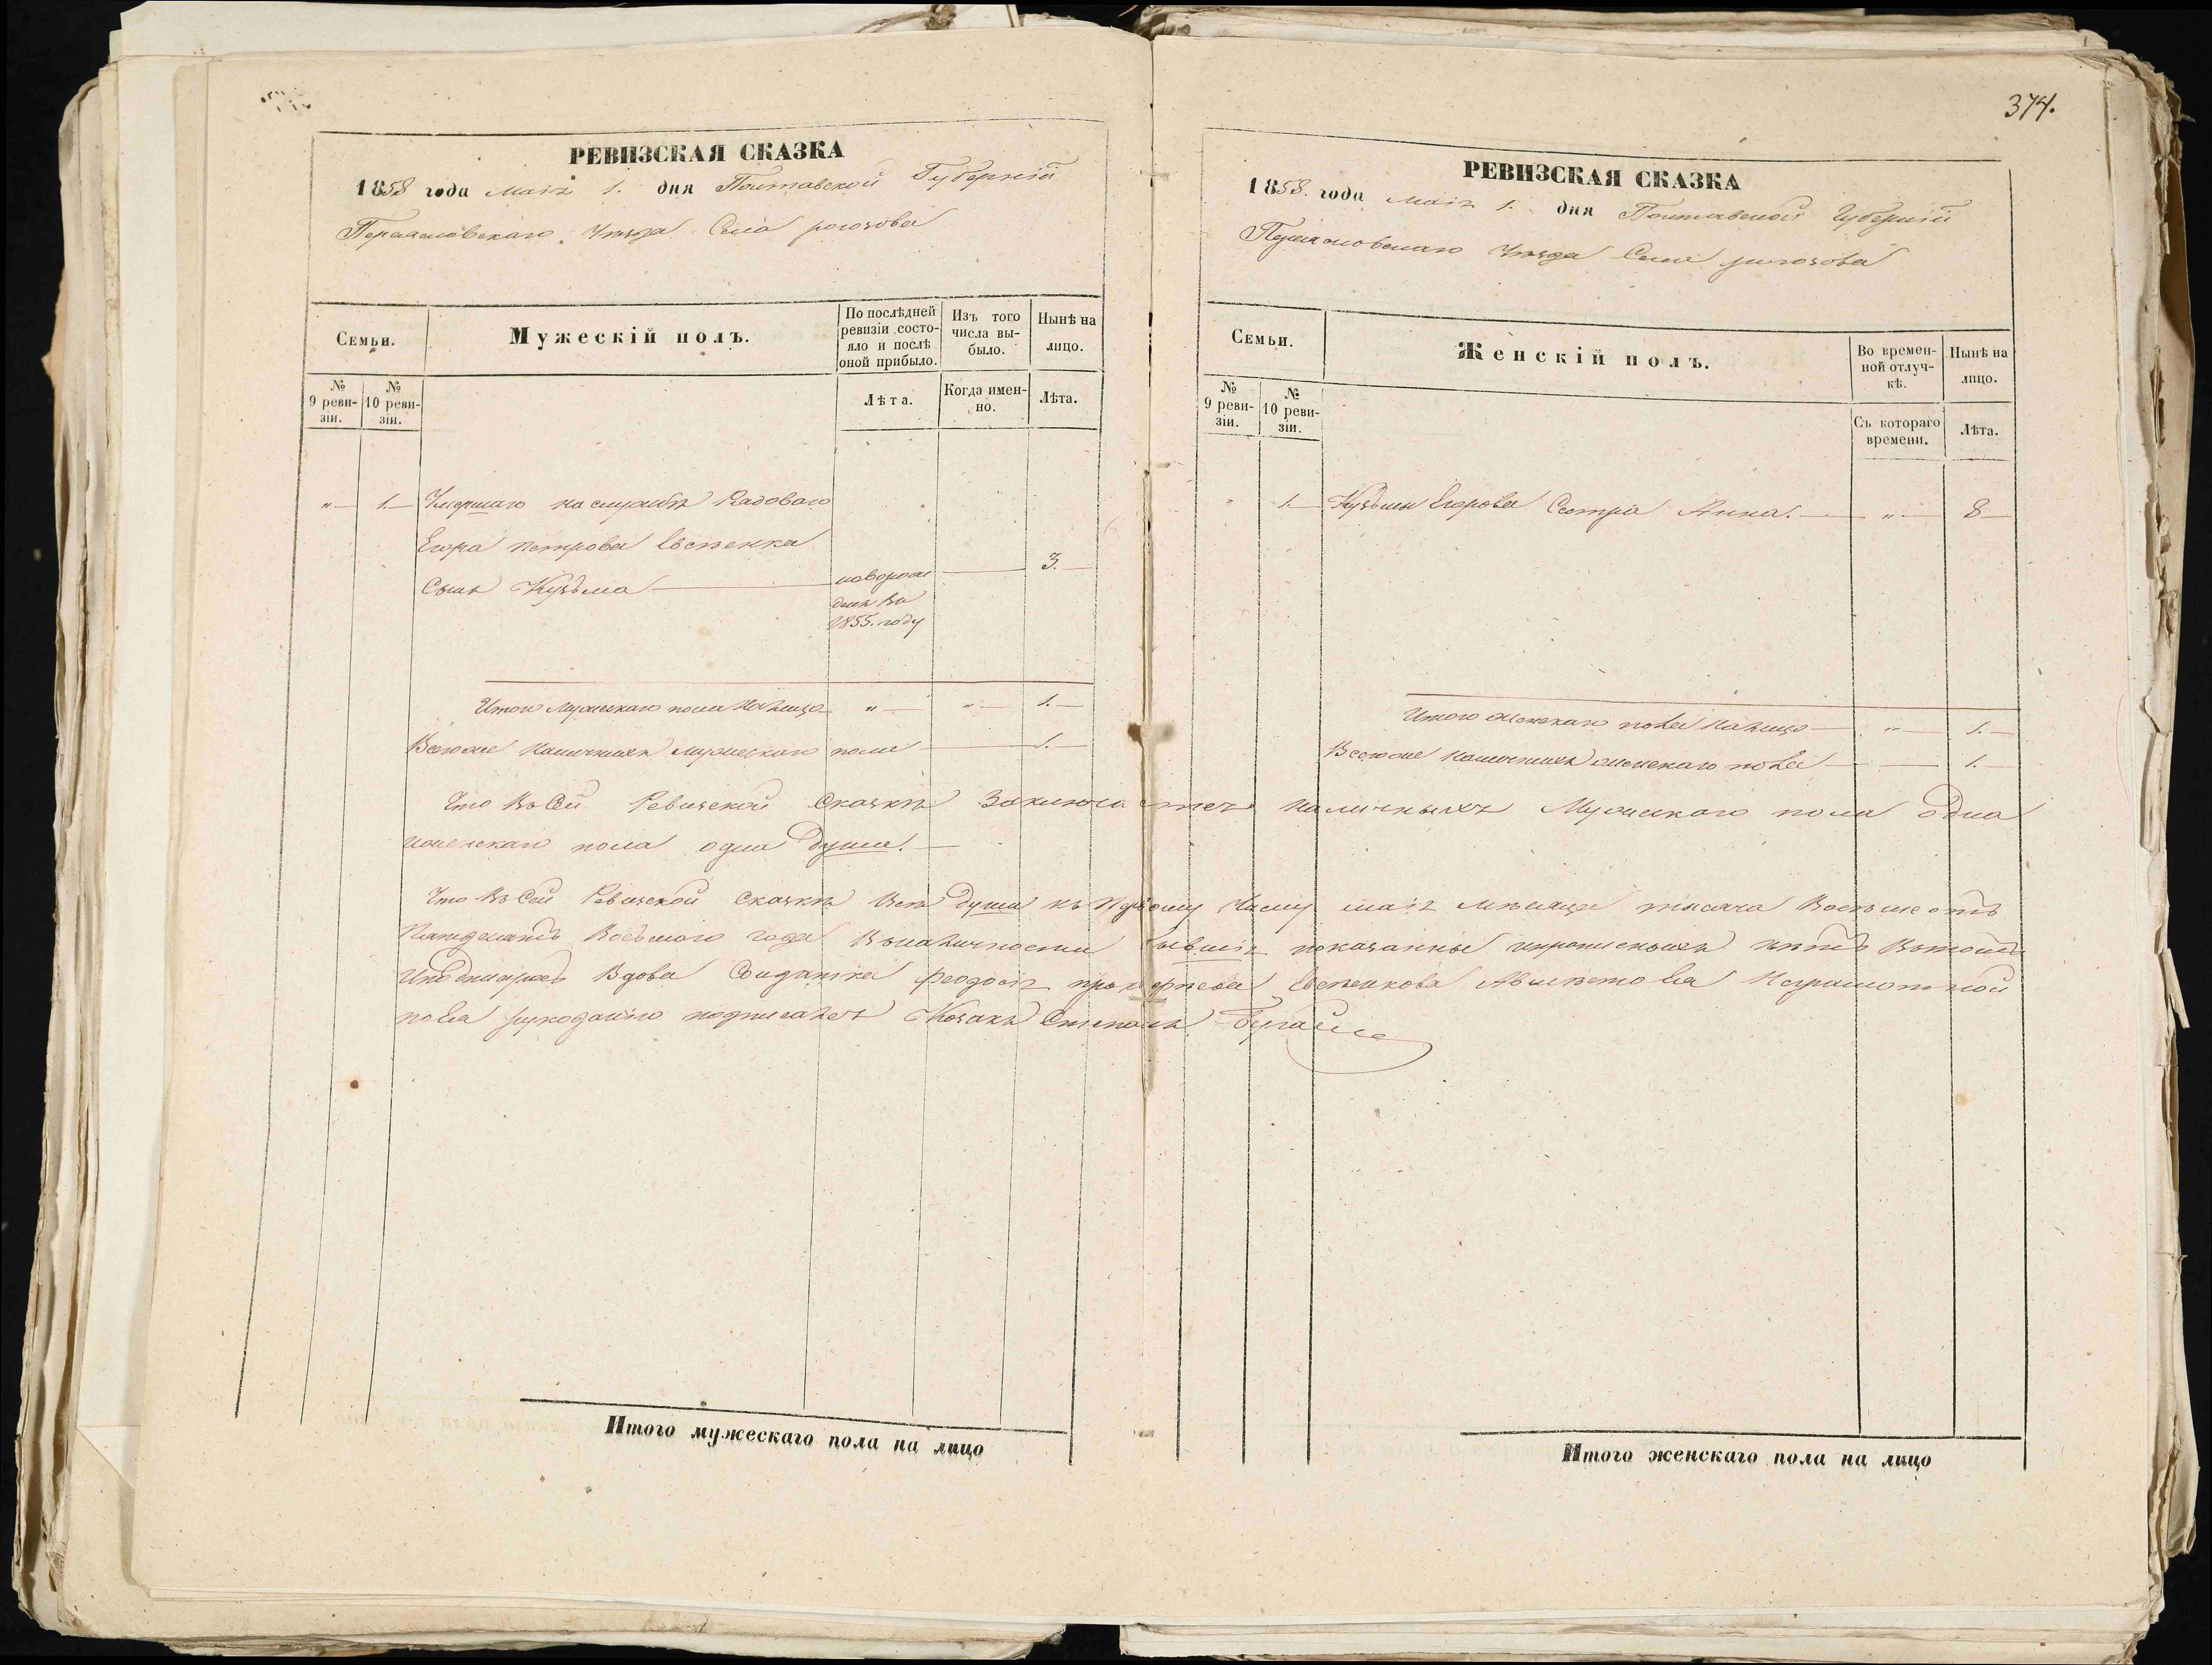 374.
РЕВИЗСКАЯ СКАЗКА
1858 года Маія 1. дня Полтавской Губерніи
Переяславскаго Уезда Села рогозова
Семьи.
Мужескій полъ.
По послѣдней ревизіи состояло и послѣ оной прибыло.
Изъ того числа выбыло.
Нынѣ на лицо.
№ 9 ревизіи.
№ 10 ревизіи.
Лѣта.
Когда именно.
Лѣта.
„ 1. Умершаго на службѣ Рядоваго
Егора петрова Евсѣенка
Сынъ Кузьма новорож 3.
денъ въ
1855. году
Итого Мужескаго пола На лицо „ „ 1.
Всегоже Наличныхъ мужескаго пола 1.
РЕВИЗСКАЯ СКАЗКА
1858. года Маія 1. дня Полтавской Губерніи
Переяславскаго Уезда Села рогозова
Семьи.
Женскій полъ.
Во временной отлучкѣ.
Нынѣ на лицо.
№ 9 ревизіи.
№ 10 ревизіи.
Съ котораго времени.
Лѣта.
„ 1. Кузьмы Егорова Сестра Анна. „ 8
Итого женскаго пола На лицо „ 1.
Всегоже Наличныхъ женскаго пола 1.
Что Въ Сей Ревизской Сказкѣ Заключается наличныхъ Мужескаго пола одна
иженскаго пола одна душа.
Что Въ Сей Ревизской Сказкѣ Всѣ души къ Первому Числу маія мѣсяца тысяча Восемьсотъ
Пятдесятъ Восьмого года Въналичности бывшія показанны инрописныхъ нѣтъ Втомъ
Иподписуюсь Вдова Солдатка феодосія прокофіева Евсѣенкова Авместо Ея Неграмотной
поЕя рукоданію подписалъ Козакъ Степанъ
Итого мужескаго пола на лицо
Итого женскаго пола на лицо